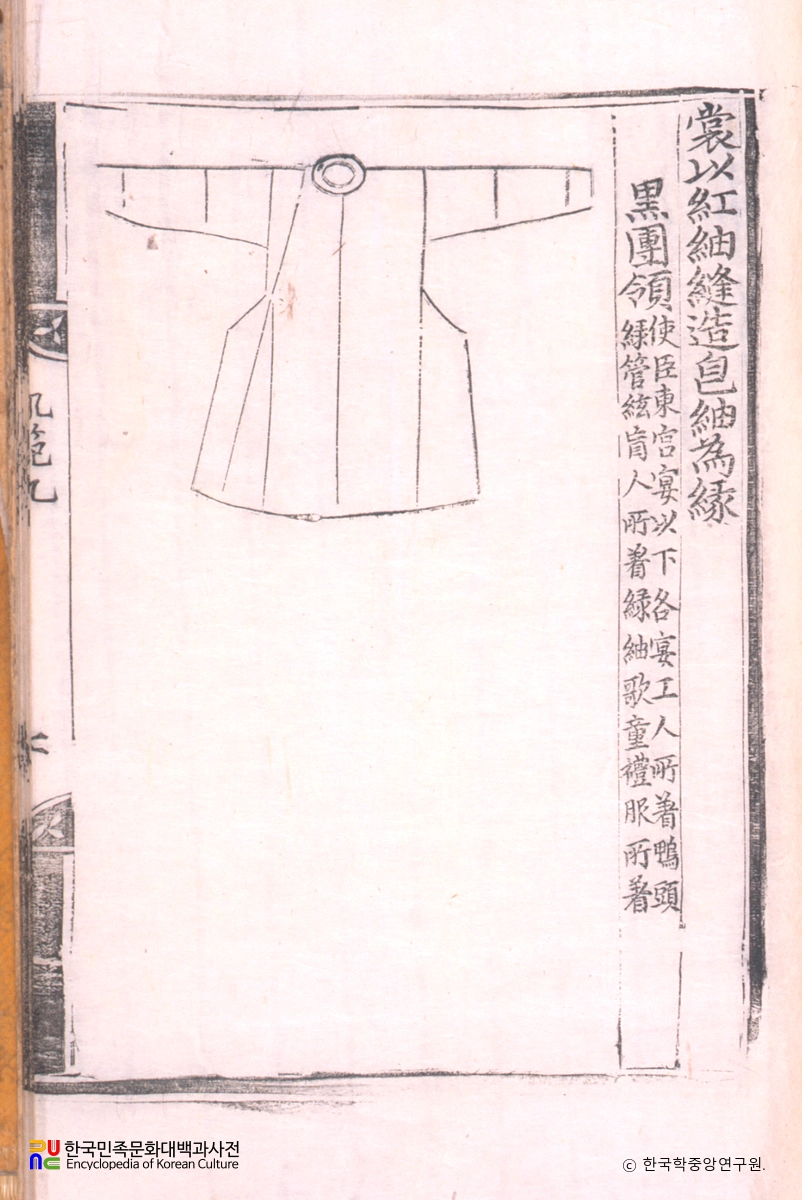 裳以紅紬縫造皀紬為縁
黒團領
使臣東宮宴以下各宴工人所着鴨頭
緑管絃盲人所着緑紬歌童禮服所着
軌範九
二
한국민족문화대백과사전
Encyclopedia of Korean Culture
© 한국학중앙연구원.